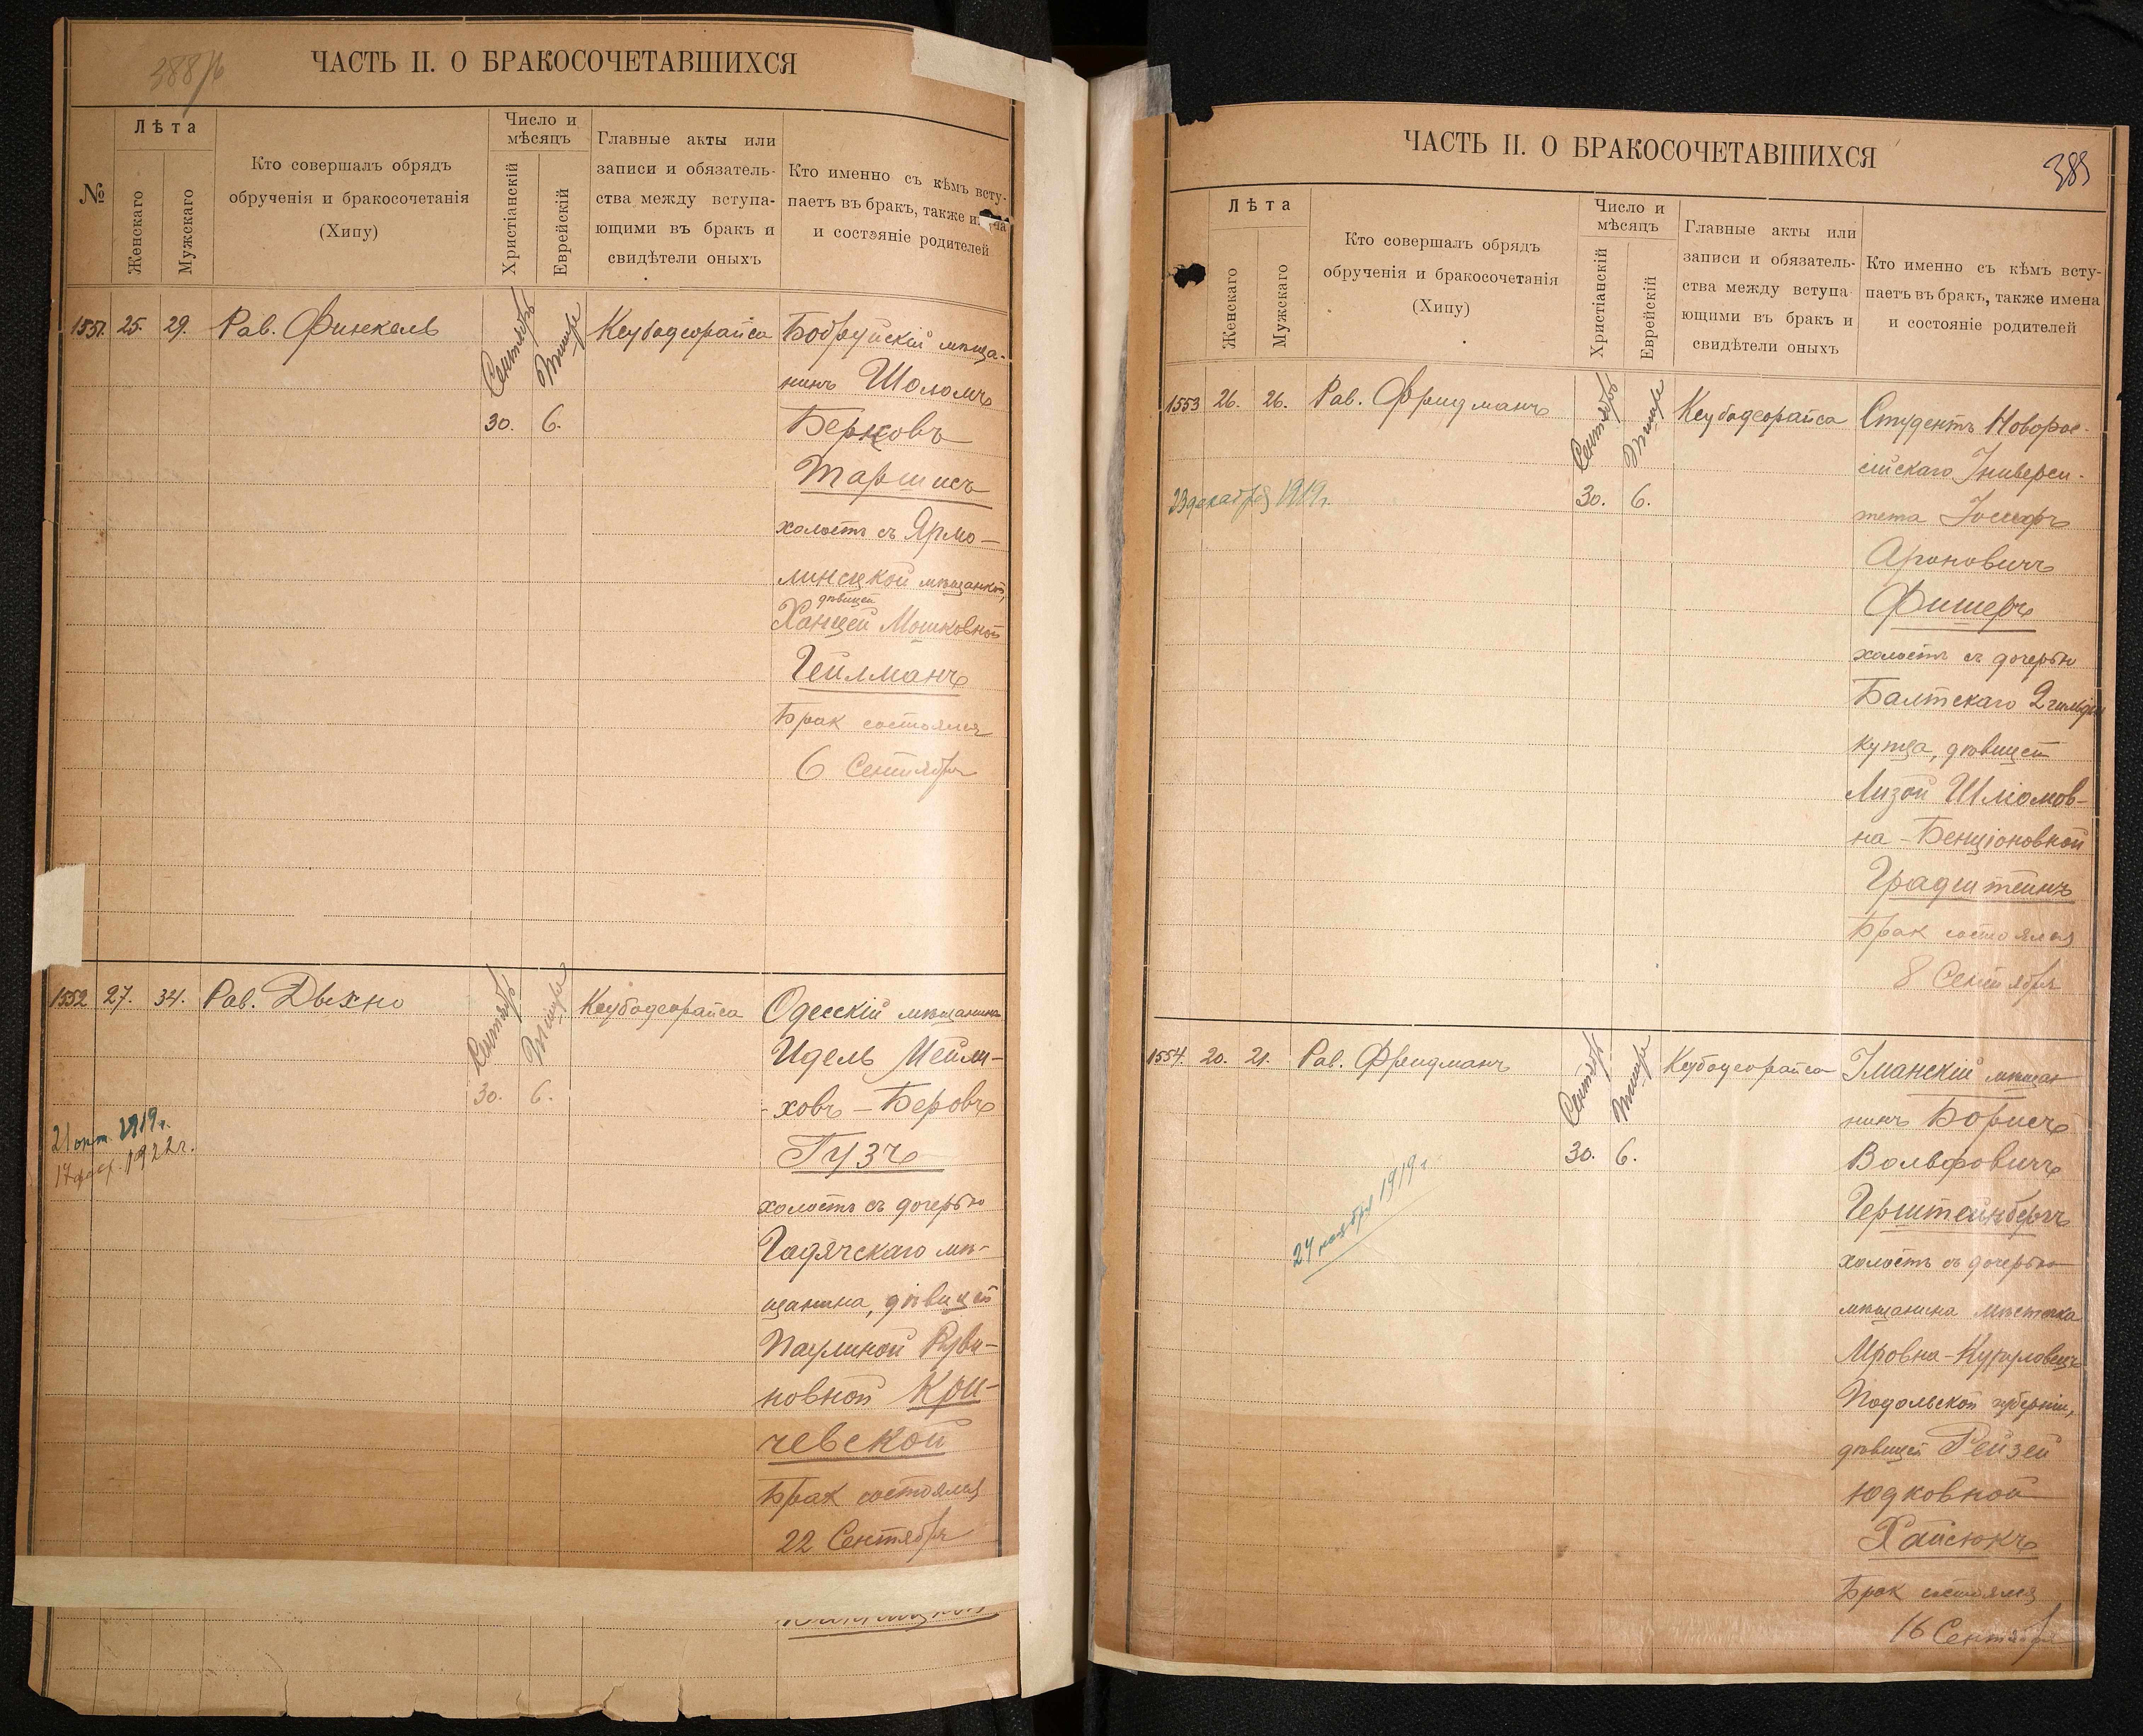 388/б
ЧАСТЬ II. О БРАКОСОЧЕТАВШИХСЯ
№
Лѣта
Женскаго
Мужскаго
Кто совершалъ обрядъ
обрученія и бракосочетанія
(Хипу)
Число и
мѣсяцъ
Христіанскій
Еврейскій
Главные акты или
записи и обязатель-
ства между вступа-
ющими въ бракъ и
свидѣтели оныхъ
Кто именно съ кѣмъ всту-
паетъ въ бракъ, также
и состэяніе родителей
1551. 25. 29. Рав. Финкель
Сентябрь
Тишре
30. 6.
Кеубодеорайса
Бобруйскій мѣща-
нинъ Шоломъ
Берковъ
Таршисъ
холостъ съ Ярмо-
линецкой мѣщанкой,
дѣвицей
Ханцей Мошковной
Гейлманъ
Брак состоялся
6 Сентября
1552 27. 34. Рав. Дыхно
Сентябрь
Тишре
30. 6.
Кеубодеорайса
21 окт. 1919г.
17 1922г.
Одесскій мѣщанинъ
Идель Мейли-
ховъ-Беровъ
Гузъ
холостъ съ дочерью
Гадячскаго мѣ-
щанина, дѣвицей
Паулиной Руви-
новной Кри-
чевской
Брак состоялся
22 Сентября
ЧАСТЬ II. О БРАКОСОЧЕТАВШИХСЯ
389
Лѣта
Женскаго
Мужскаго
Кто совершалъ обрядъ
обрученія и бракосочетанія
(Хипу)
Число и
мѣсяцъ
Христіанскій
Еврейскій
Главные акты или
записи и обязатель-
ства между вступа
ющими въ бракъ и
свидѣтели оныхъ
Кто именно съ кѣмъ всту-
паетъ въ бракъ, также имена
и состояніе родителей
1553 26. 26. Рав. Фридманъ
Сентябрь
Тишре
30. 6.
Кеубодеорайса
23 декабря 1919г.
Студентъ Новорос-
сійскаго Универси-
тета Іосифъ
Ароновичъ
Фишеръ
холостъ съ дочерью
Балтскаго 2 гильдіи
купца, дѣвицей
Лизой Шліомов-
на-Бенціоновной
Градштейнъ
Брак состоялся
8 Сентября
1554. 20. 21. Рав. Фридманъ
Сентябрь
Тишре
30. 6.
Кеубодеорайса
24 ноября 1919г.
Уманскій мѣщан
нинъ Борисъ
Вольфовичъ
Герштейнбергъ
холостъ съ дочерью
мѣщанина мѣстечка
Подольской губерніи,
дѣвицей Рейзей
Юдковной
Хайсюкъ
Брак состоялся
16 Сентября